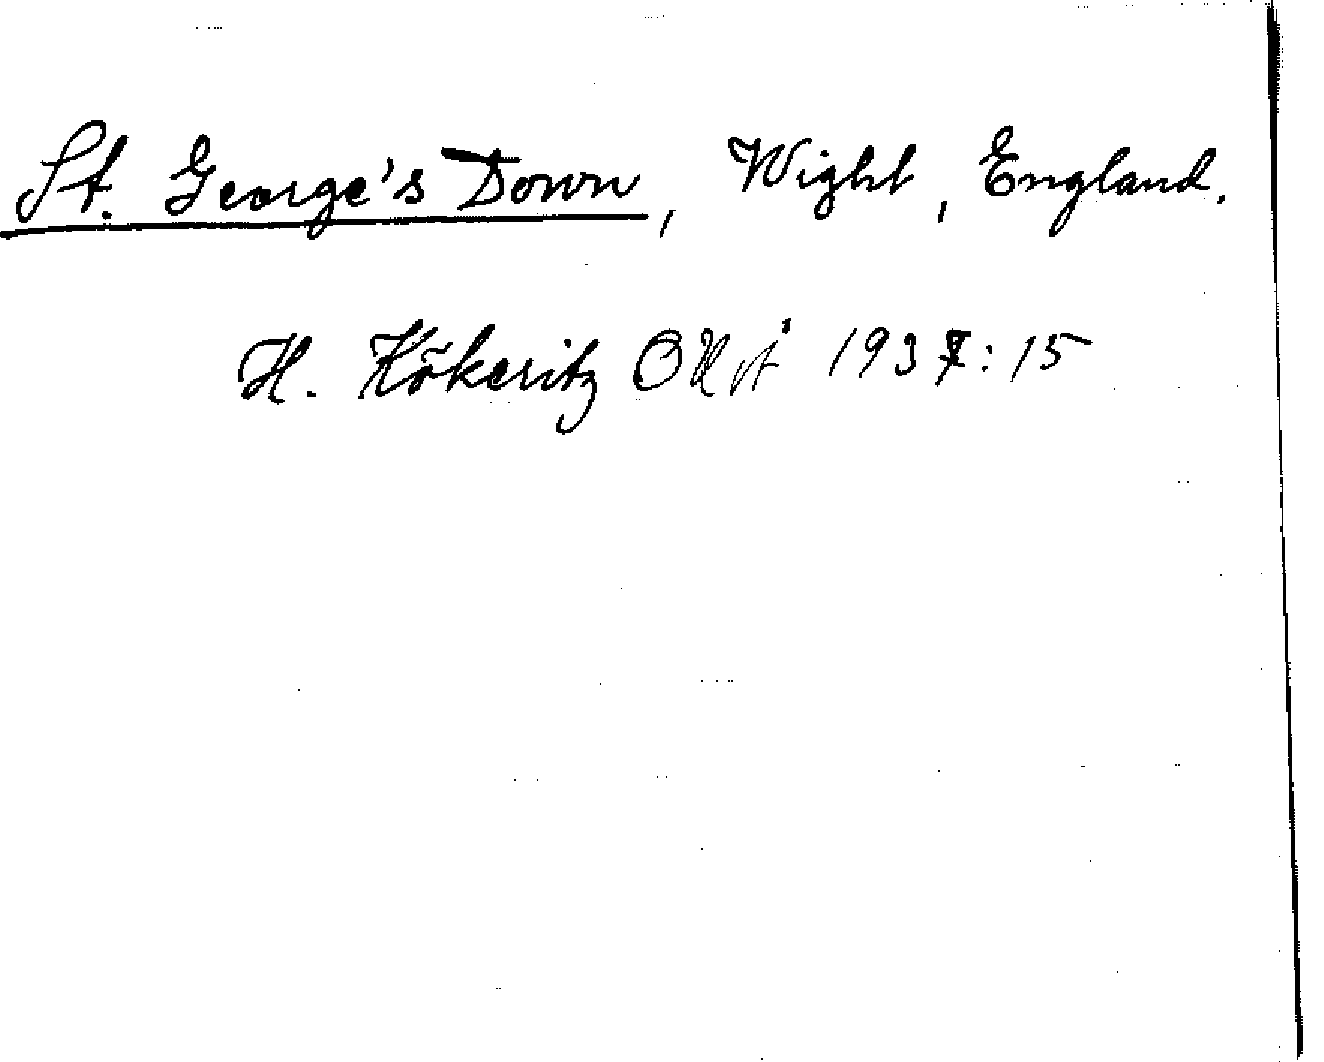 St. George's Down, Wight, England.
H. Kökeritz 1937:15